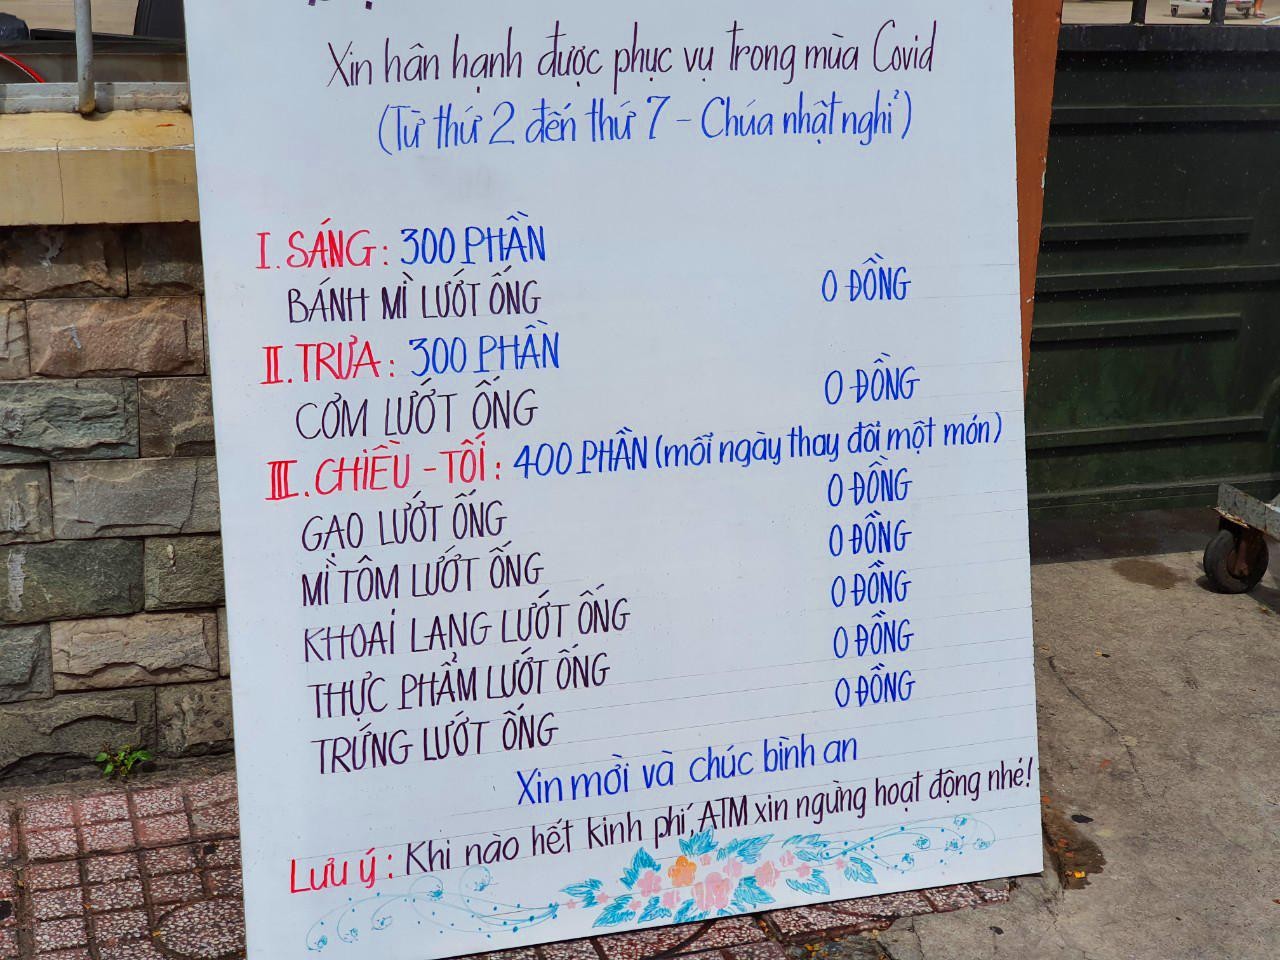 Xin hân hạnh được phục vụ trong mùa Covid
(Từ thứ 2 đến thứ 7 - Chúa nhật nghỉ)
I. SÁNG: 300 PHẦN
BÁNH MÌ LƯỚT ỐNG 0 ĐỒNG
II. TRƯA: 300 PHẦN
CƠM LƯỚT ỐNG 0 ĐỒNG
III. CHIỀU - TỐI: 400 PHẦN (mỗi ngày thay đổi một món)
GẠO LƯỚT ỐNG 0 ĐỒNG
MÌ TÔM LƯỚT ỐNG 0 ĐỒNG
KHOAI LANG LƯỚT ỐNG 0 ĐỒNG
THỰC PHẨM LƯỚT ỐNG 0 ĐỒNG
TRỨNG LƯỚT ỐNG 0 ĐỒNG
Xin mời và chúc bình an
Lưu ý: Khi nào hết kinh phí, ATM xin ngừng hoạt động nhé!